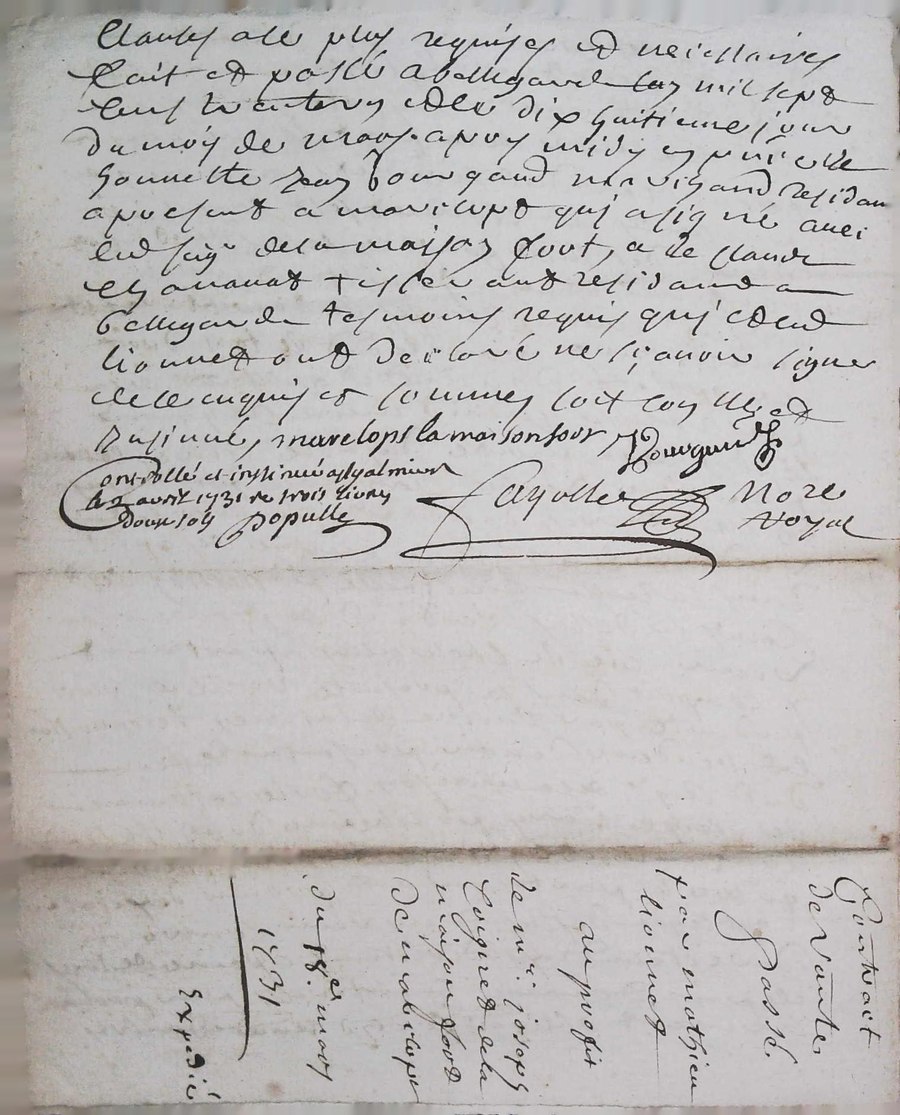 Clauses a ce plus requises et neicessaires
fait et passé a bellegarde lan mil sept
cens trente un et le dixhuitieme jour
du mois de mars apres midy en presence de
honnette jean bourgand residan
a present a marclopt qui a signé avec
led sieur de la maison fort, et de claude
tisserant residand a
bellegarde tesmoins requis qui et led
lionnet ont declaré ne sçavoir signer
de ce enquis et sommes soit conllé et
insinué, marclopt la maisonfort Bourgand
Controllé et insinué a st galmier
le 2 avril 1731 re trois livres
douze sols Populle
Fayolle Nore
Royal
Contract
de vante
passé
par mathieu
lionnet
au profit
de mr. joseph
Coignet de la
maison fort
de marclopt
du 18e. mars
1731
Expedié